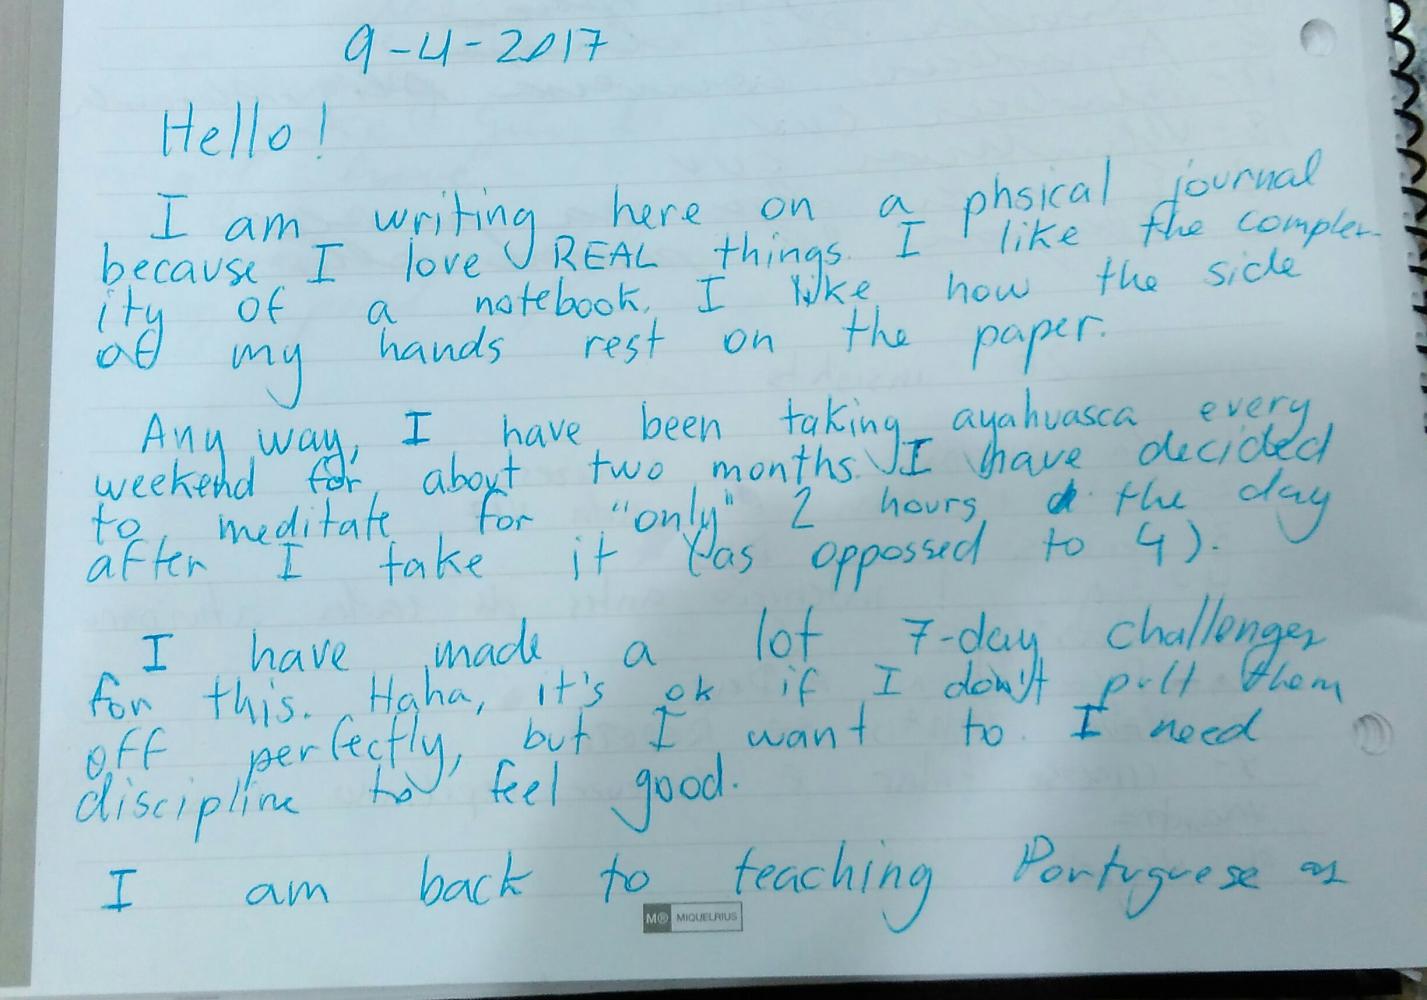 9-4-2017
Hello!
I am writing here on a phsical journal
because I love REAL things. I like the complex-
ity of a notebook. I like how the side
of my hands rest on the paper.
Any way, I have been taking ayahuasca every
weekend for about two months. I have decided
to meditate for "only" 2 hours the day
after I take it (as oppossed to 4).
I have made a lot 7-day challenges
for this. Haha, it's ok if I don't pull them
off perfectly, but I want to. I need
discipline to feel good.
I am back to teaching Portuguese as
M® MIQUELRIUS